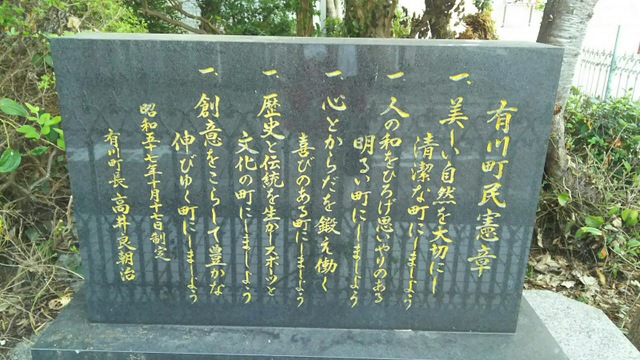 有川町民憲章
一、美しい自然を大切にし
清潔な町にしましょう
一、人の和をひろげ思いやりのある
明るい町にしましょう
一、心とからだを鍛え働く
喜びのある町にしましょう
一、歴史と伝統を生かしスポーツと
文化の町にしましょう
一、創意をこらして豊かな
伸びゆく町にしましょう
昭和五十七年十月十七日制定
有川町長 高井良朝治